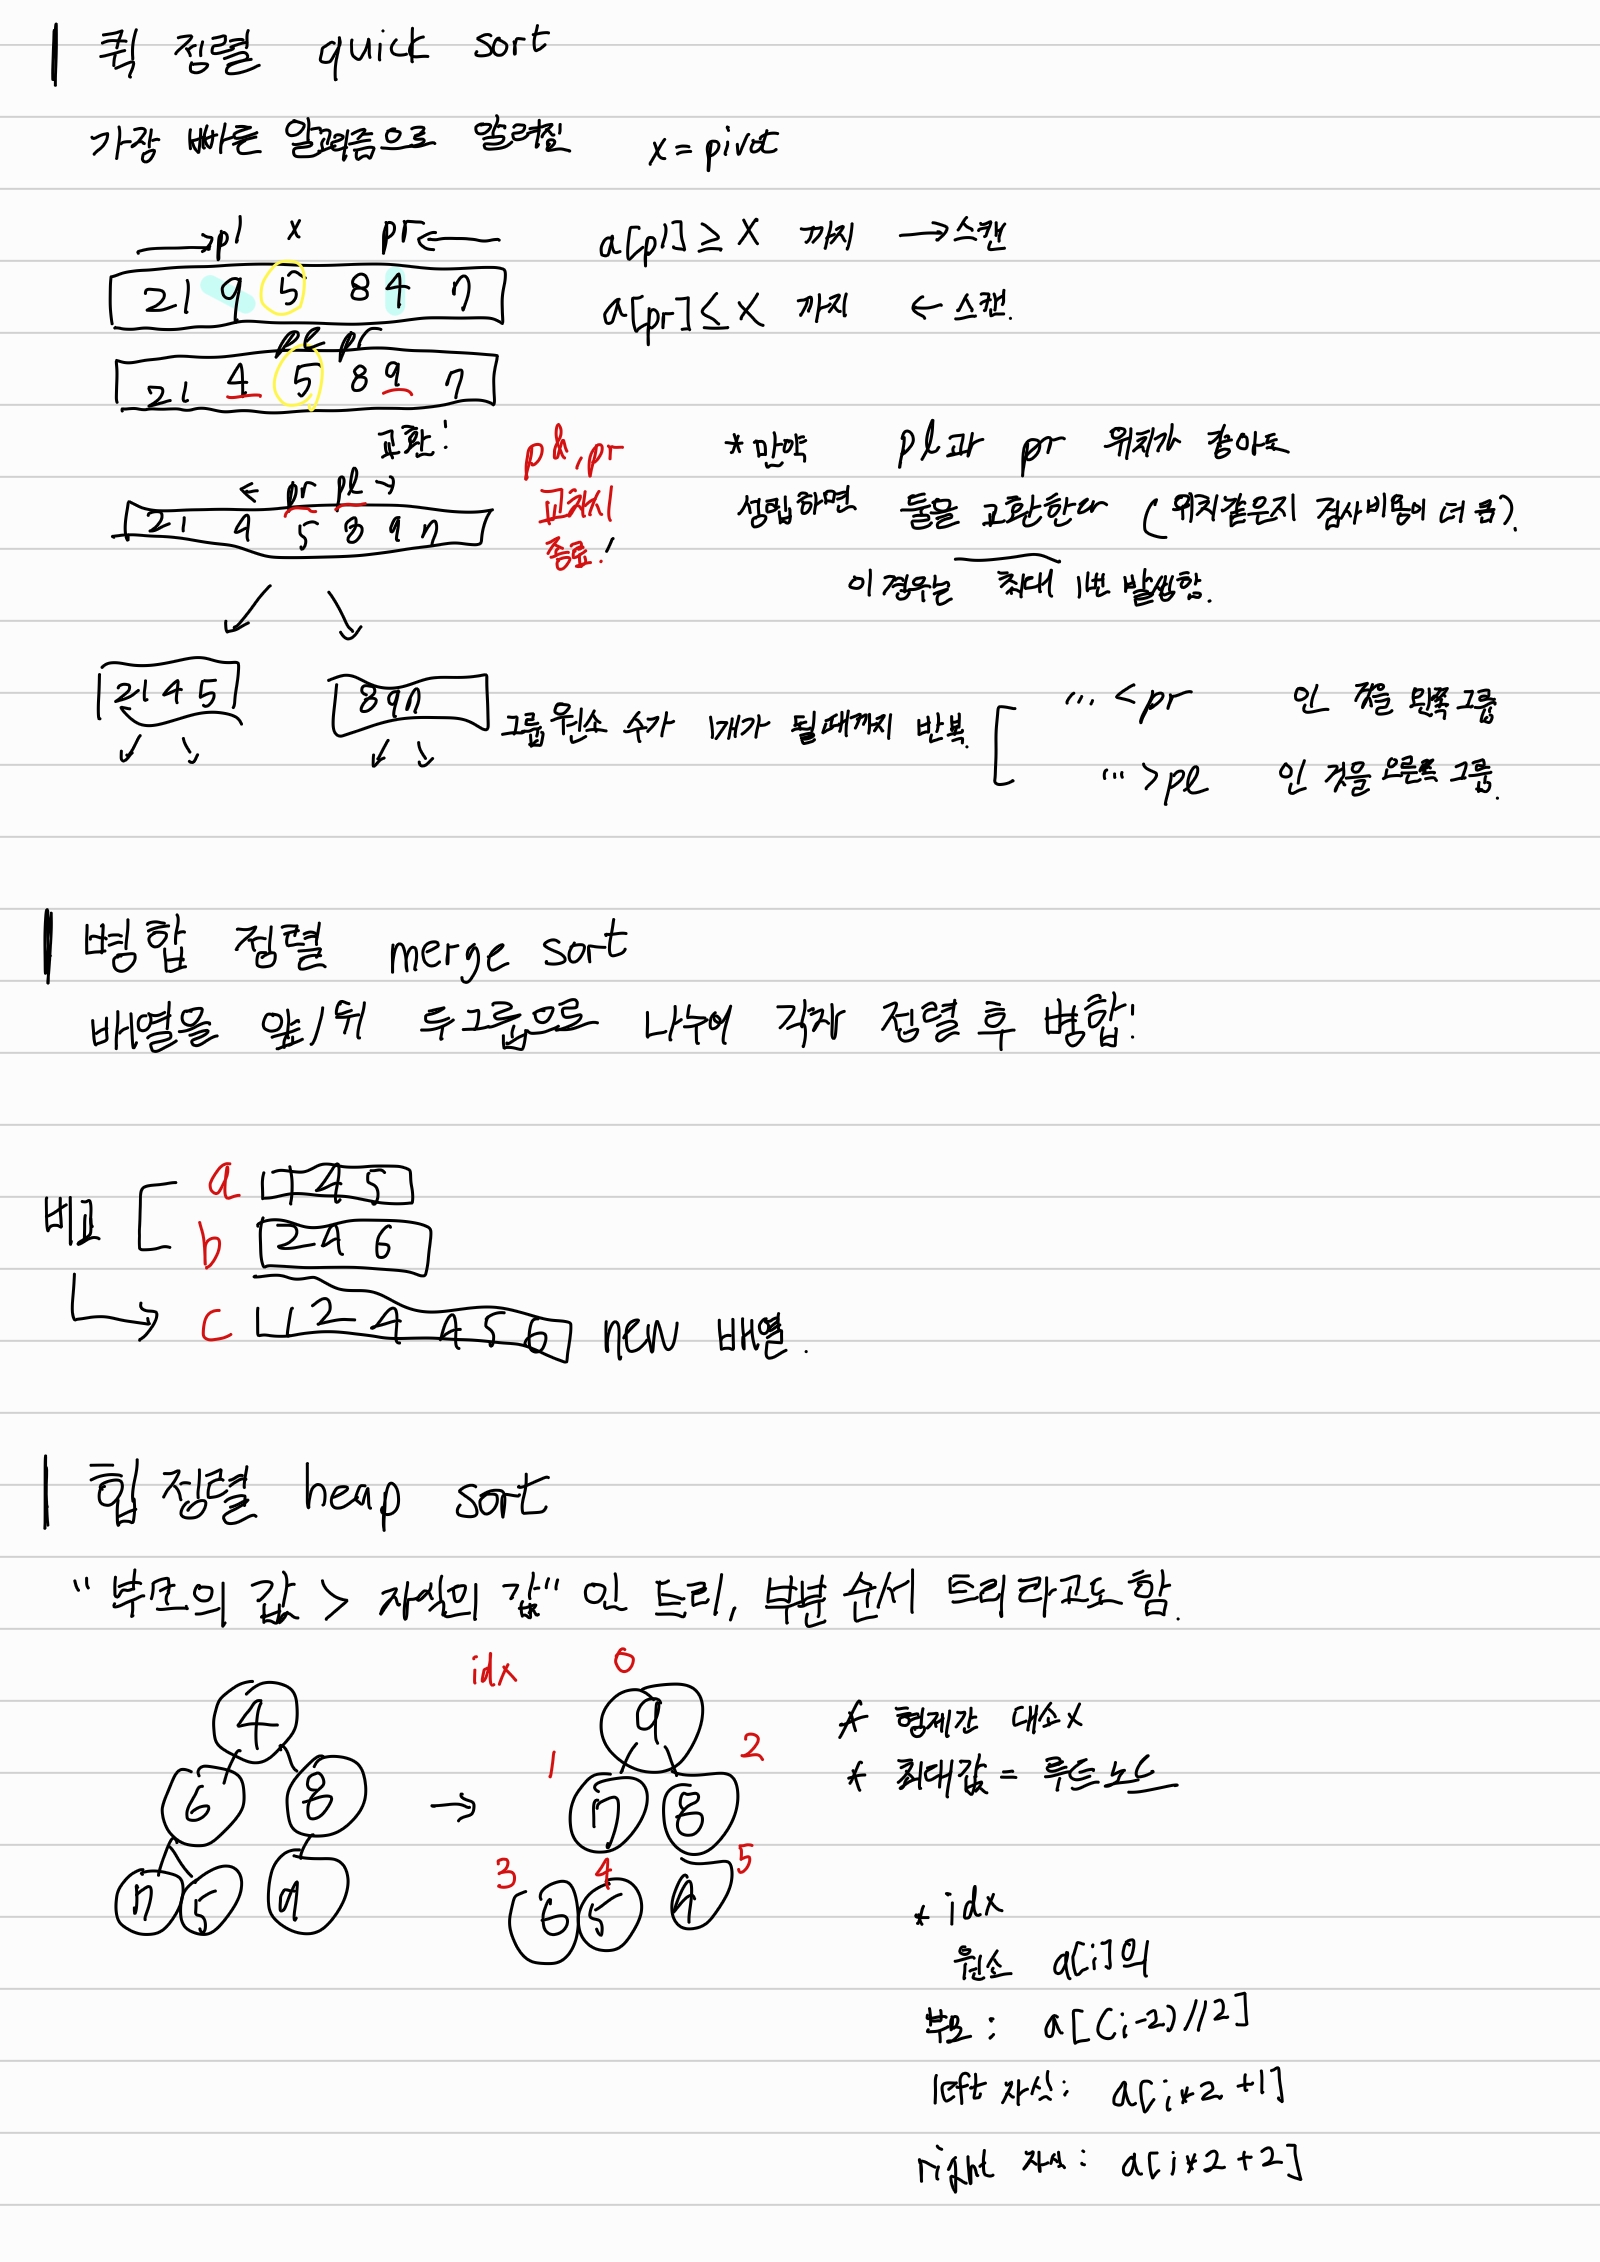 퀵 정렬 quick sort
가장 빠른 알고리즘으로 알려짐 x = pivot
pl x pr
2 1 9 5 8 4 7
a[pl] ≥ x 까지 → 스캔
a[pr] ≤ x 까지 ← 스캔.
pl pr
2 1 4 5 8 9 7
교환!
← pr pl →
2 1 4 5 8 9 7
pl, pr
교차시
종료!
* 만약 pl과 pr 위치가 같아도
성립하면 둘을 교환한다 (위치같은지 검사비용이 더 큼).
이 경우는 최대 1번 발생함.
2 1 4 5
8 9 7
그룹 원소 수가 1개가 될때까지 반복.
... < pr 인 것을 왼쪽 그룹
... > pl 인 것을 오른쪽 그룹.
병합 정렬 merge sort
배열을 앞/뒤 두그룹으로 나누어 각자 정렬 후 병합!
비교
a 1 4 5
b 2 4 6
c 1 2 4 4 5 6 new 배열.
힙 정렬 heap sort
"부모의 값 > 자식의 값" 인 트리, 부분 순서 트리라고도 함.
4
6 8
7 5 9
→
idx 0
9
1 2
7 8
3 4 5
6 5 4
* 형제간 대소x
* 최대값 = 루트 노드
* idx
원소 a[i]의
부모 : a[(i-2)//2]
left 자식 : a[i*2+1]
right 자식 : a[i*2+2]